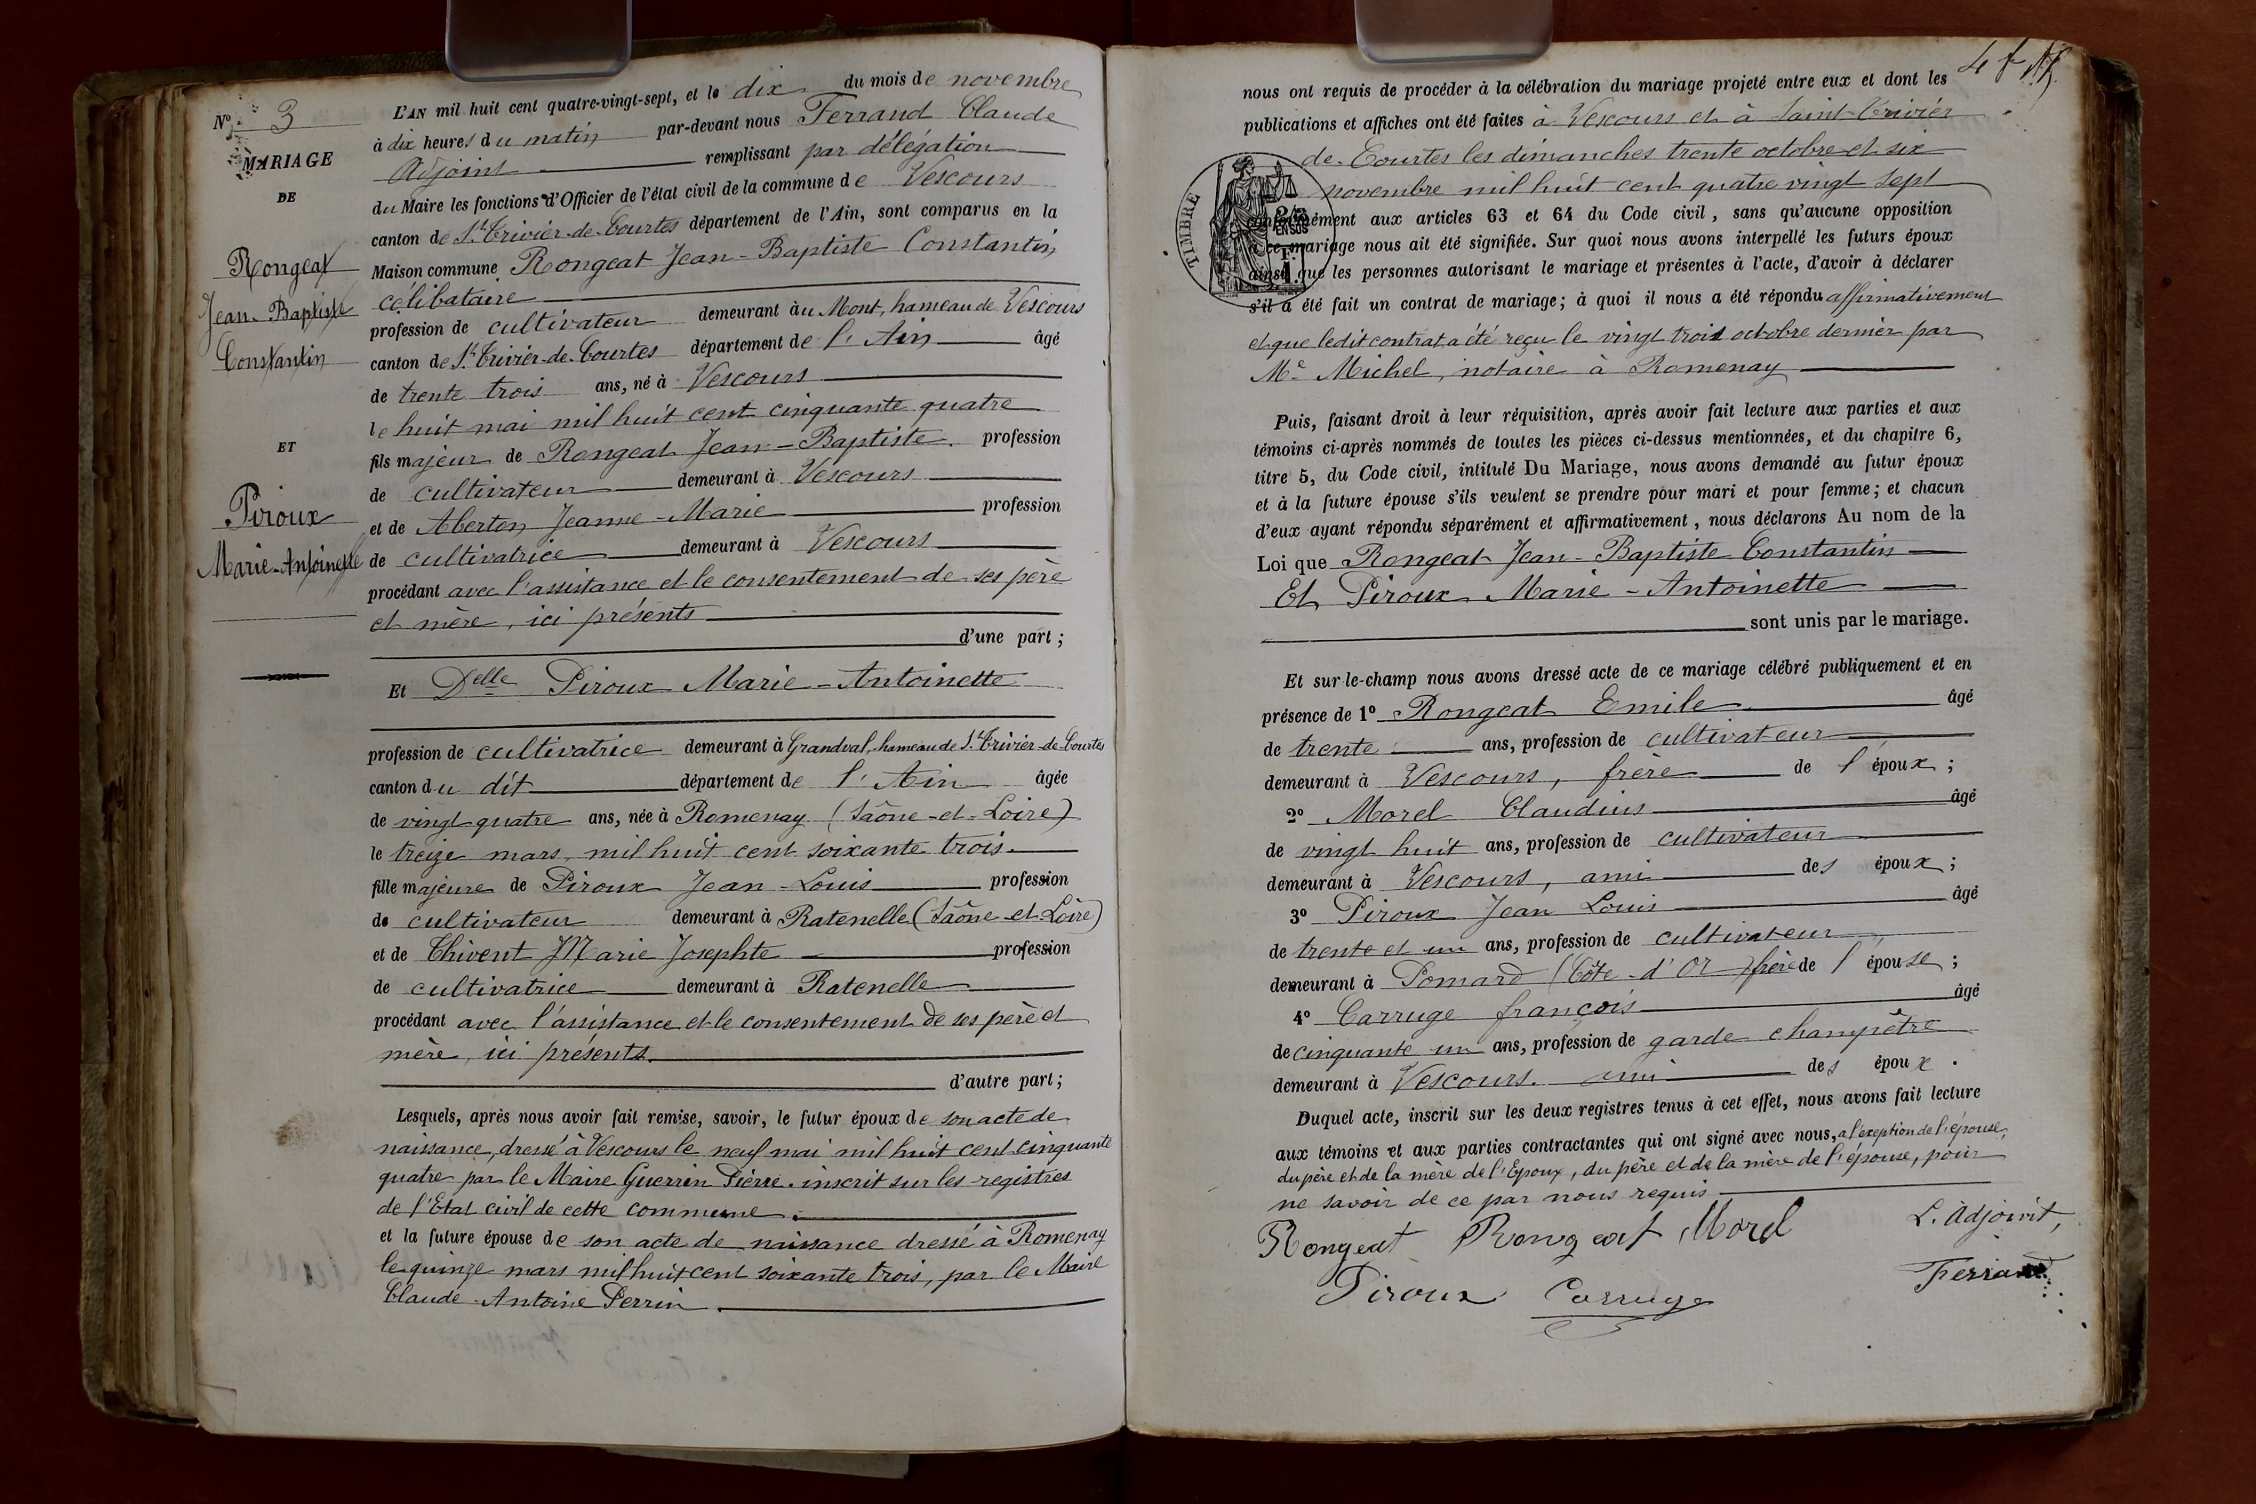 Nº 3
MARIAGE
DE
Rongeat
Jean-Baptiste
Constantin
ET
Piroux
Marie-Antoinette
L'AN mil huit cent quatre-vingt-sept, et le dix du mois de novembre
à dix heures du matin par-devant nous Ferrand Claude
Adjoint remplissant par délégation
du Maire les fonctions d'Officier de l'état civil de la commune de Vescours
canton de St Trivier-de-Courtes département de l'Ain, sont comparus en la
Maison commune Rongeat Jean-Baptiste Constantin
célibataire
profession de cultivateur demeurant au Mont, hameau de Vescours
canton de St Trivier-de-Courtes département de l'Ain âgé
de trente trois ans, né à Vescours
le huit mai mil huit cent cinquante quatre
fils majeur de Rongeat Jean-Baptiste profession
de cultivateur demeurant à Vescours
et de Aberton Jeanne-Marie profession
de cultivatrice demeurant à Vescours
procédant avec l'assistance et le consentement de ses père
et mère, ici présents
d'une part ;
Et Delle Piroux Marie-Antoinette
profession de cultivatrice demeurant à Grandval, hameau de St Trivier-de-Courtes
canton du dit département de l'Ain âgée
de vingt quatre ans, née à Romenay (Saône-et-Loire)
le treize mars mil huit cent soixante trois
fille majeure de Piroux Jean-Louis profession
de cultivateur demeurant à Ratenelle (Saône-et-Loire)
et de Thivent Marie Josephte profession
de cultivatrice demeurant à Ratenelle
procédant avec l'assistance et le consentement de ses père et
mère, ici présents.
d'autre part ;
Lesquels, après nous avoir fait remise, savoir, le futur époux de son acte de
naissance, dressé à Vescours le neuf mai mil huit cent cinquante
quatre par le Maire Guerrin Pierre inscrit sur les registres
de l'Etat civil de cette commune.
et la future épouse de son acte de naissance dressé à Romenay
le quinze mars mil huit cent soixante trois, par le Maire
Claude-Antoine Perrin.
nous ont requis de procéder à la célébration du mariage projeté entre eux et dont les
publications et affiches ont été faites à Vescours et à Saint-Trivier
de-Courtes les dimanches trente octobre et six
novembre mil huit cent quatre vingt sept
conformément aux articles 63 et 64 du Code civil, sans qu'aucune opposition
à ce mariage nous ait été signifiée. Sur quoi nous avons interpellé les futurs époux
ainsi que les personnes autorisant le mariage et présentes à l'acte, d'avoir à déclarer
s'il a été fait un contrat de mariage ; à quoi il nous a été répondu affirmativement
et que ledit contrat a été reçu le vingt trois octobre dernier par
Me Michel, notaire à Romenay
TIMBRE
2/10
EN SUS
1 F.
Puis, faisant droit à leur réquisition, après avoir fait lecture aux parties et aux
témoins ci-après nommés de toutes les pièces ci-dessus mentionnées, et du chapitre 6,
titre 5, du Code civil, intitulé Du Mariage, nous avons demandé au futur époux
et à la future épouse s'ils veulent se prendre pour mari et pour femme ; et chacun
d'eux ayant répondu séparément et affirmativement, nous déclarons Au nom de la
Loi que Rongeat Jean-Baptiste Constantin
Et Piroux Marie-Antoinette
sont unis par le mariage.
Et sur-le-champ nous avons dressé acte de ce mariage célébré publiquement et en
présence de 1º Rongeat Emile âgé
de trente ans, profession de cultivateur
demeurant à Vescours, frère de l'époux ;
2º Morel Claudius âgé
de vingt huit ans, profession de cultivateur
demeurant à Vescours, ami des époux ;
3º Piroux Jean Louis âgé
de trente et un ans, profession de cultivateur
demeurant à Pomard (Côte-d'Or) frère de l'épouse ;
4º Carruge françois âgé
de cinquante un ans, profession de garde champêtre
demeurant à Vescours. ami des époux.
Duquel acte, inscrit sur les deux registres tenus à cet effet, nous avons fait lecture
aux témoins et aux parties contractantes qui ont signé avec nous, a l'exeption de l'épouse,
du père et de la mère de l'Epoux, du père et de la mère de l'épouse, pour
ne savoir de ce par nous requis
Rongeat Rongeat Morel L'Adjoint,
Piroux Carruge Ferrand